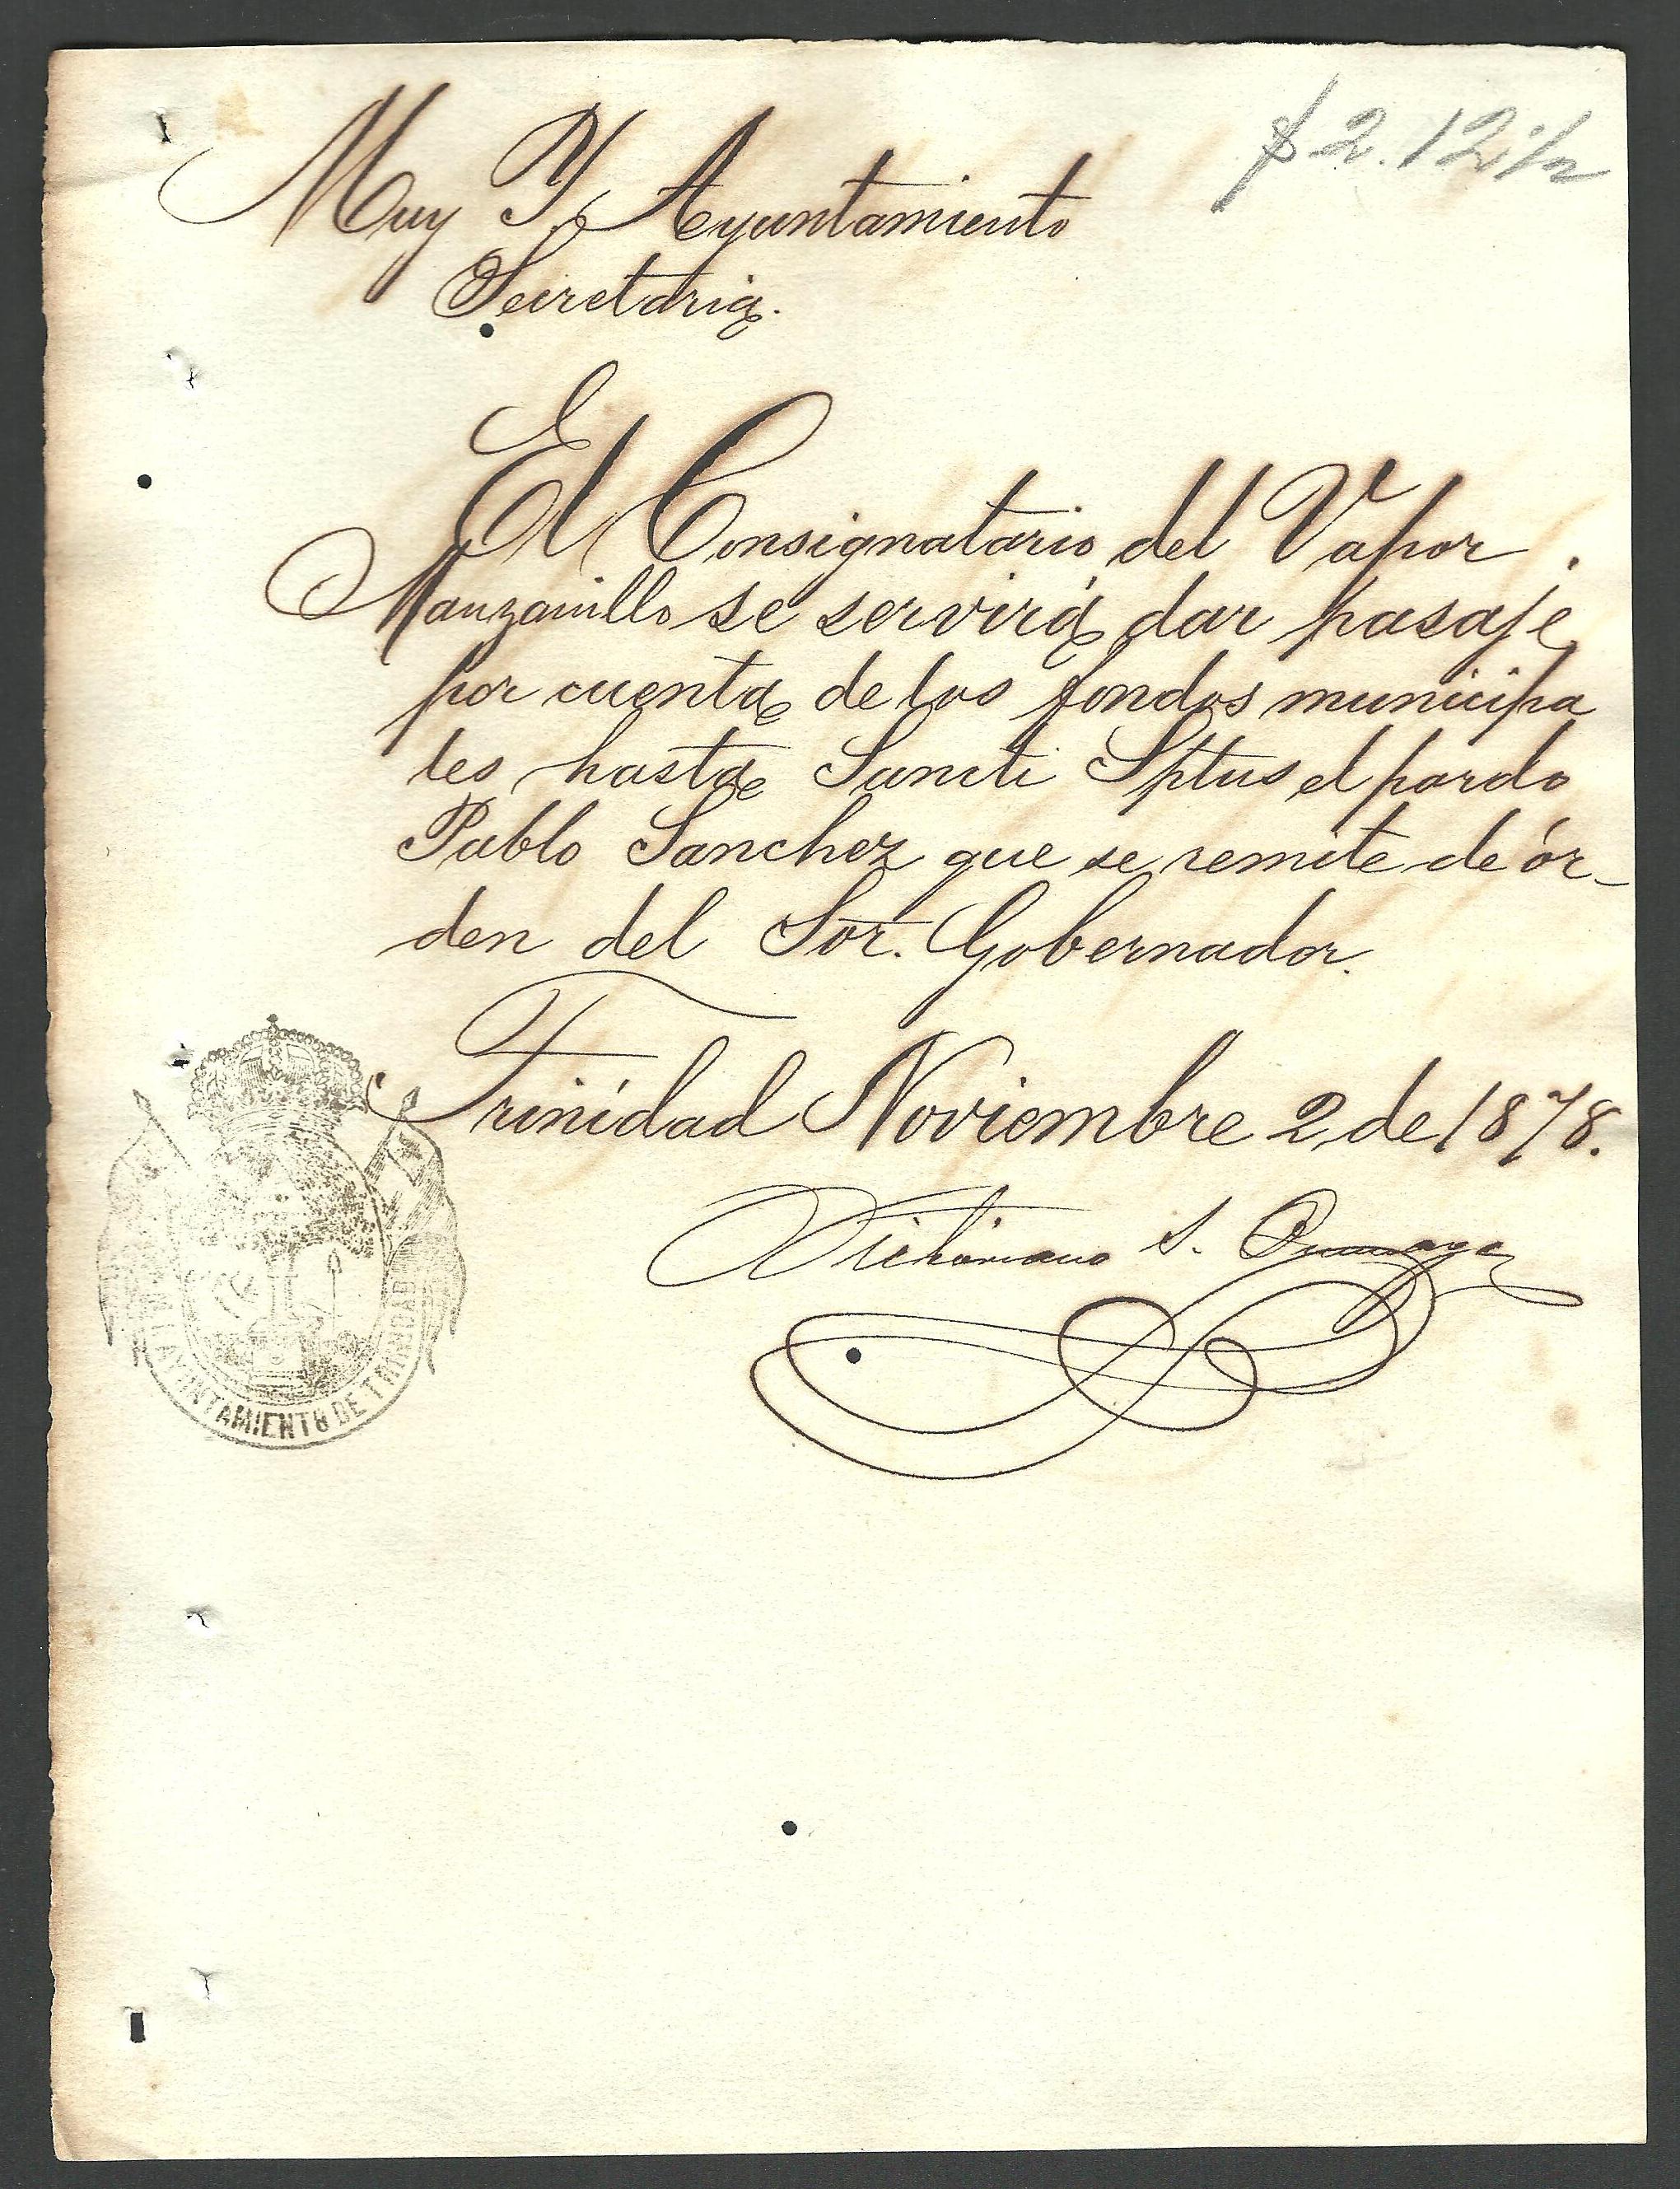 $ 2.12 1/2
Muy Y. Ayuntamiento
Secretaria.
El Consignatario del Vapor
Manzanillo se servirá dar pasaje
por cuenta de los fondos municipa
les hasta Sancti Sptus el pardo
Pablo Sanchez que se remite de ór-
den del Sor. Gobernador.
Trinidad Noviembre 2 de 1878.
Victoriano S.
AYUNTAMIENTO DE TRINIDAD